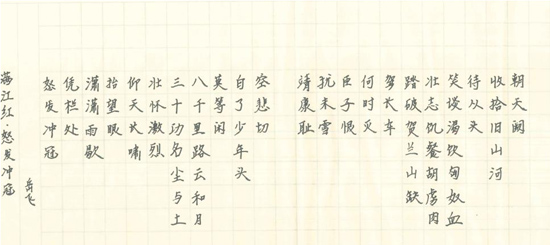 满江红·怒发冲冠
岳飞
怒发冲冠
凭栏处
潇潇雨歇
抬望眼
仰天长啸
壮怀激烈
三十功名尘与土
八千里路云和月
莫等闲
白了少年头
空悲切
靖康耻
犹未雪
臣子恨
何时灭
驾长车
踏破贺兰山缺
壮志饥餐胡虏肉
笑谈渴饮匈奴血
待从头
收拾旧山河
朝天阙